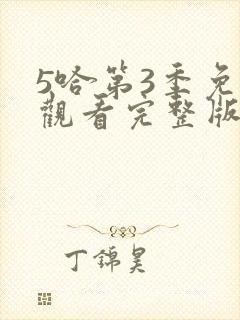 5哈第3季免
觀看完整版
丁錦昊